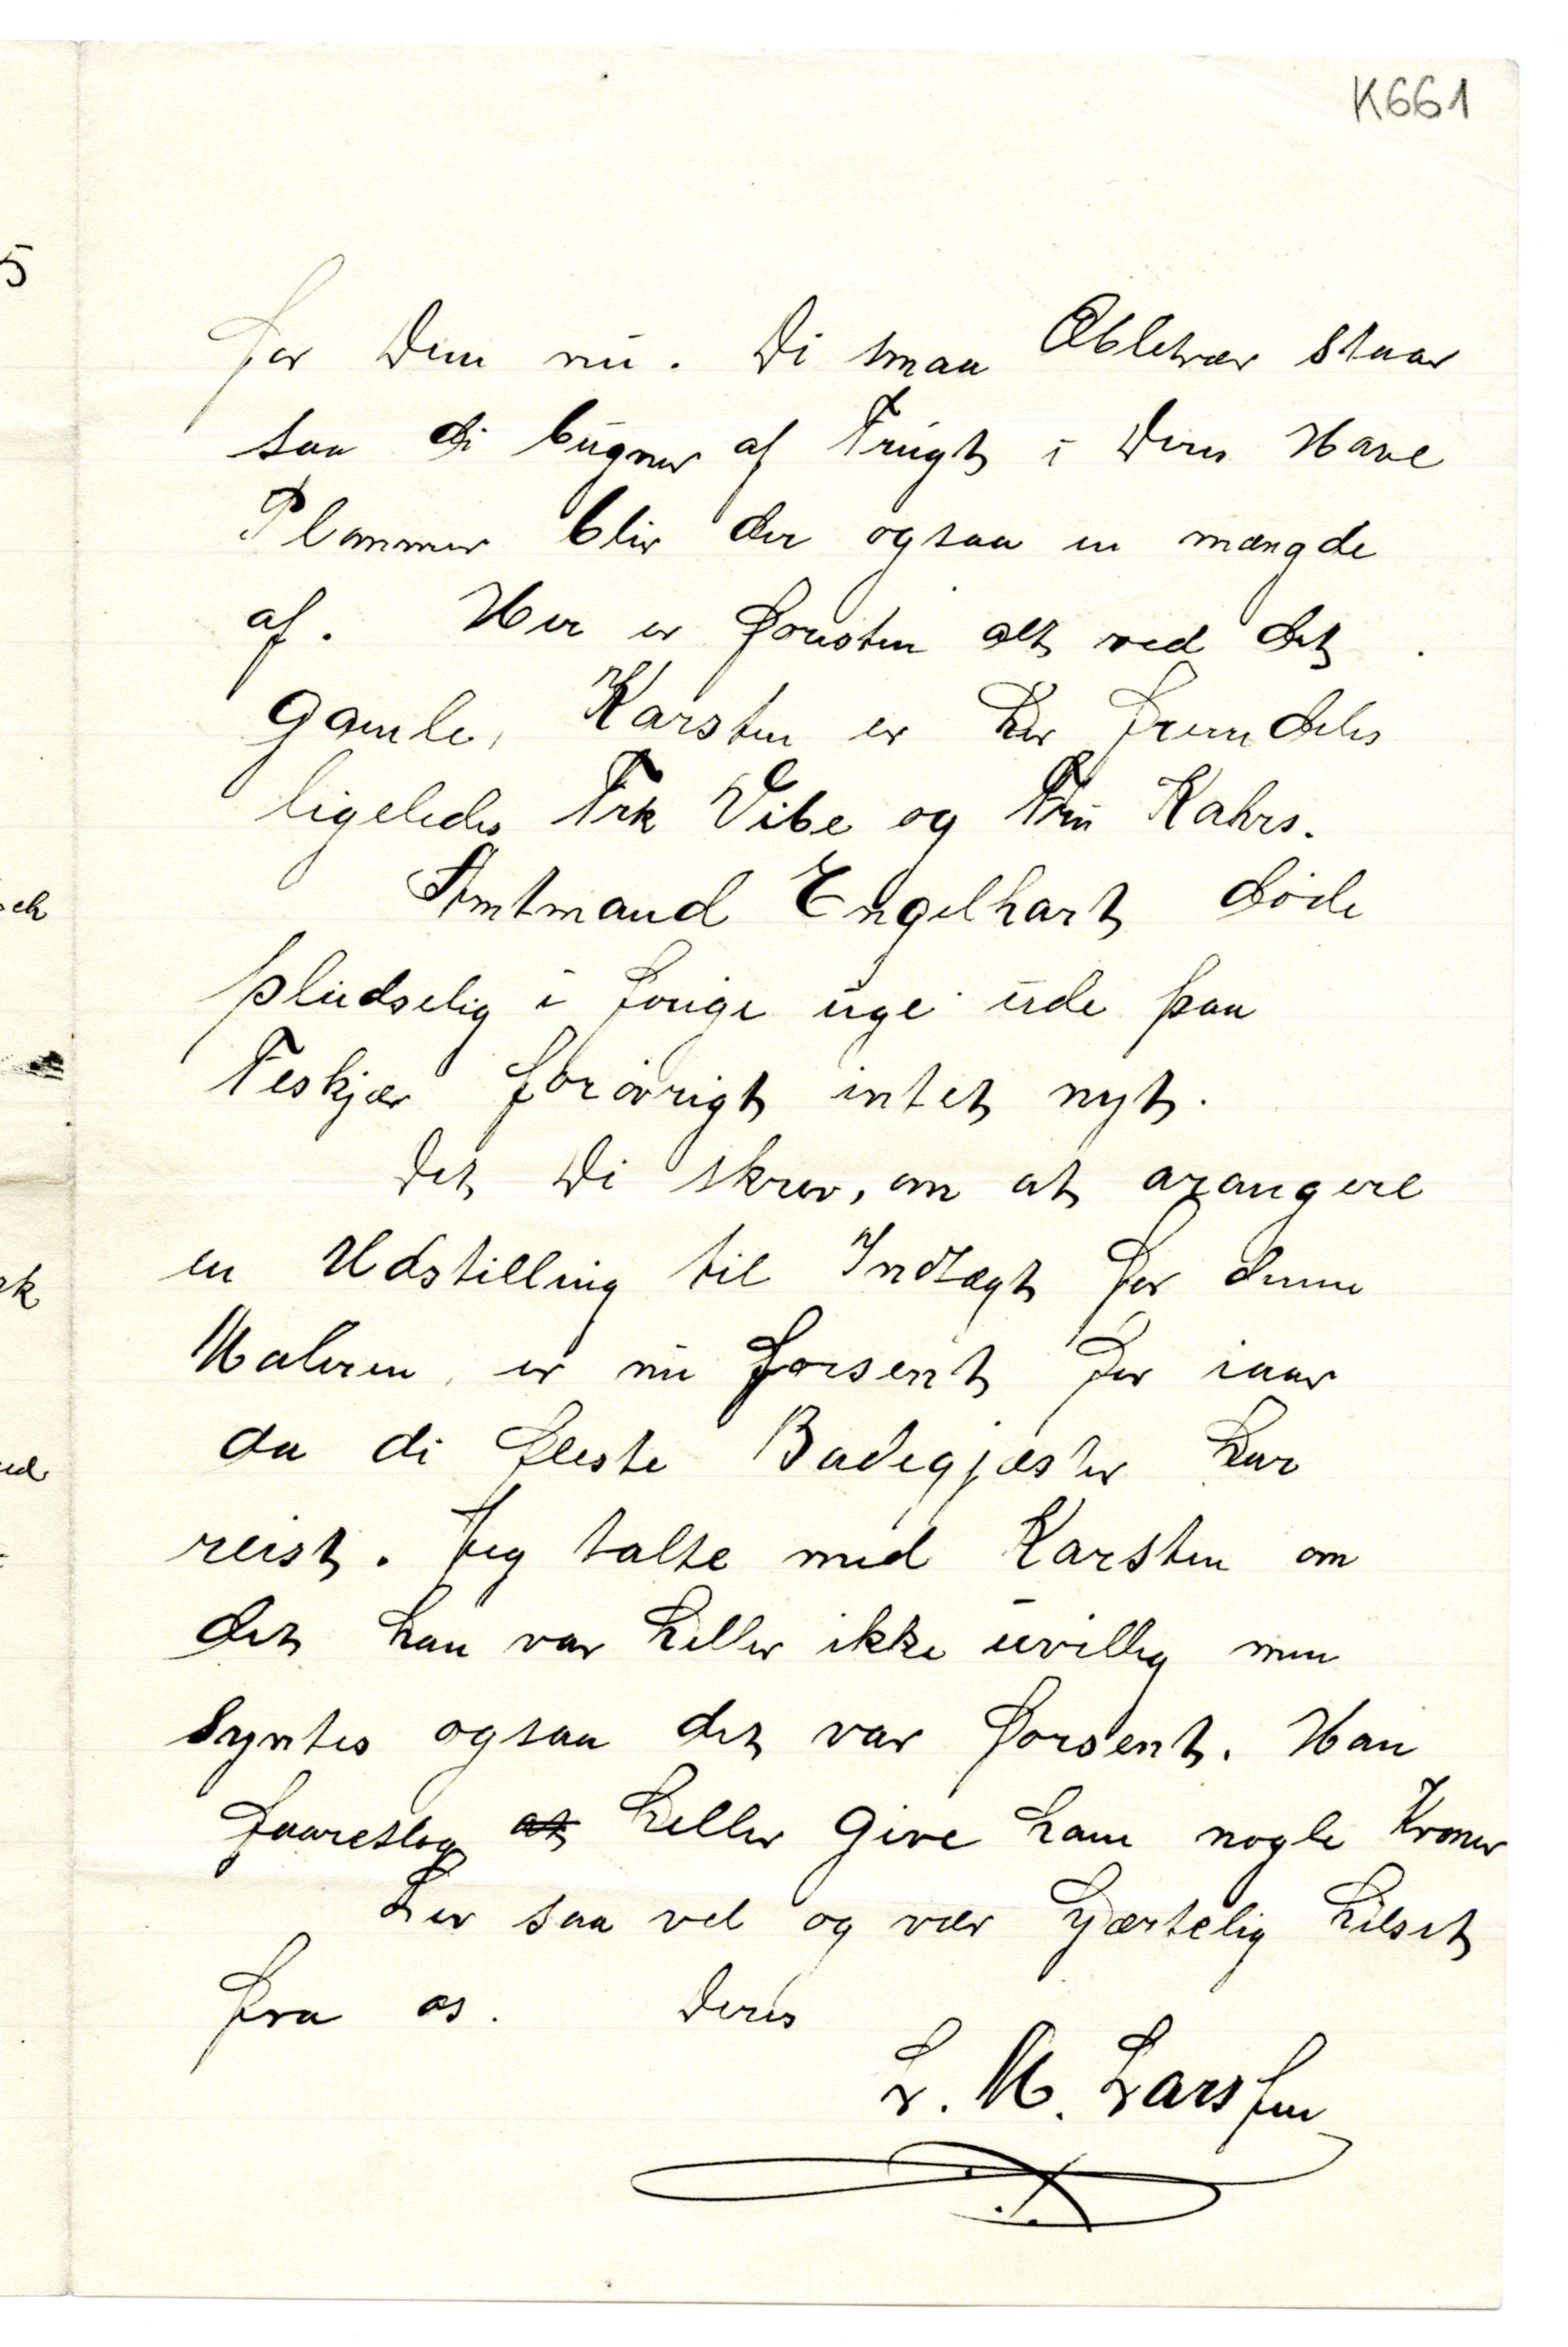 K661
for Dem nu. Di smaa Æbletrær staar
saa di bugner af Frugt i Deres Have
Plommer blir der ogsaa en mængde
af. Her er foresten alt ved det
Gamle, Karsten er her fremdeles
ligeledes Frk Vibe og Fru Kahrs.
Amtmand Engelhart døde
pludselig i forige uge ude paa
Feskjær forøvrigt intet nyt.
Det Di skrev, om at arangere
en Udstilling til Indtægt for denne
Maleren, er nu forsent for iaar
da di fleste Badegjæster har
reist. Jeg talte med Karsten om
det han var heller ikke uvillig men
syntes ogsaa det var forsent. Han
faareslog at heller give ham nogle Kroner
Lev saa vel og vær hjærtelig hilset
fra os. Deres
L. M. Larssen